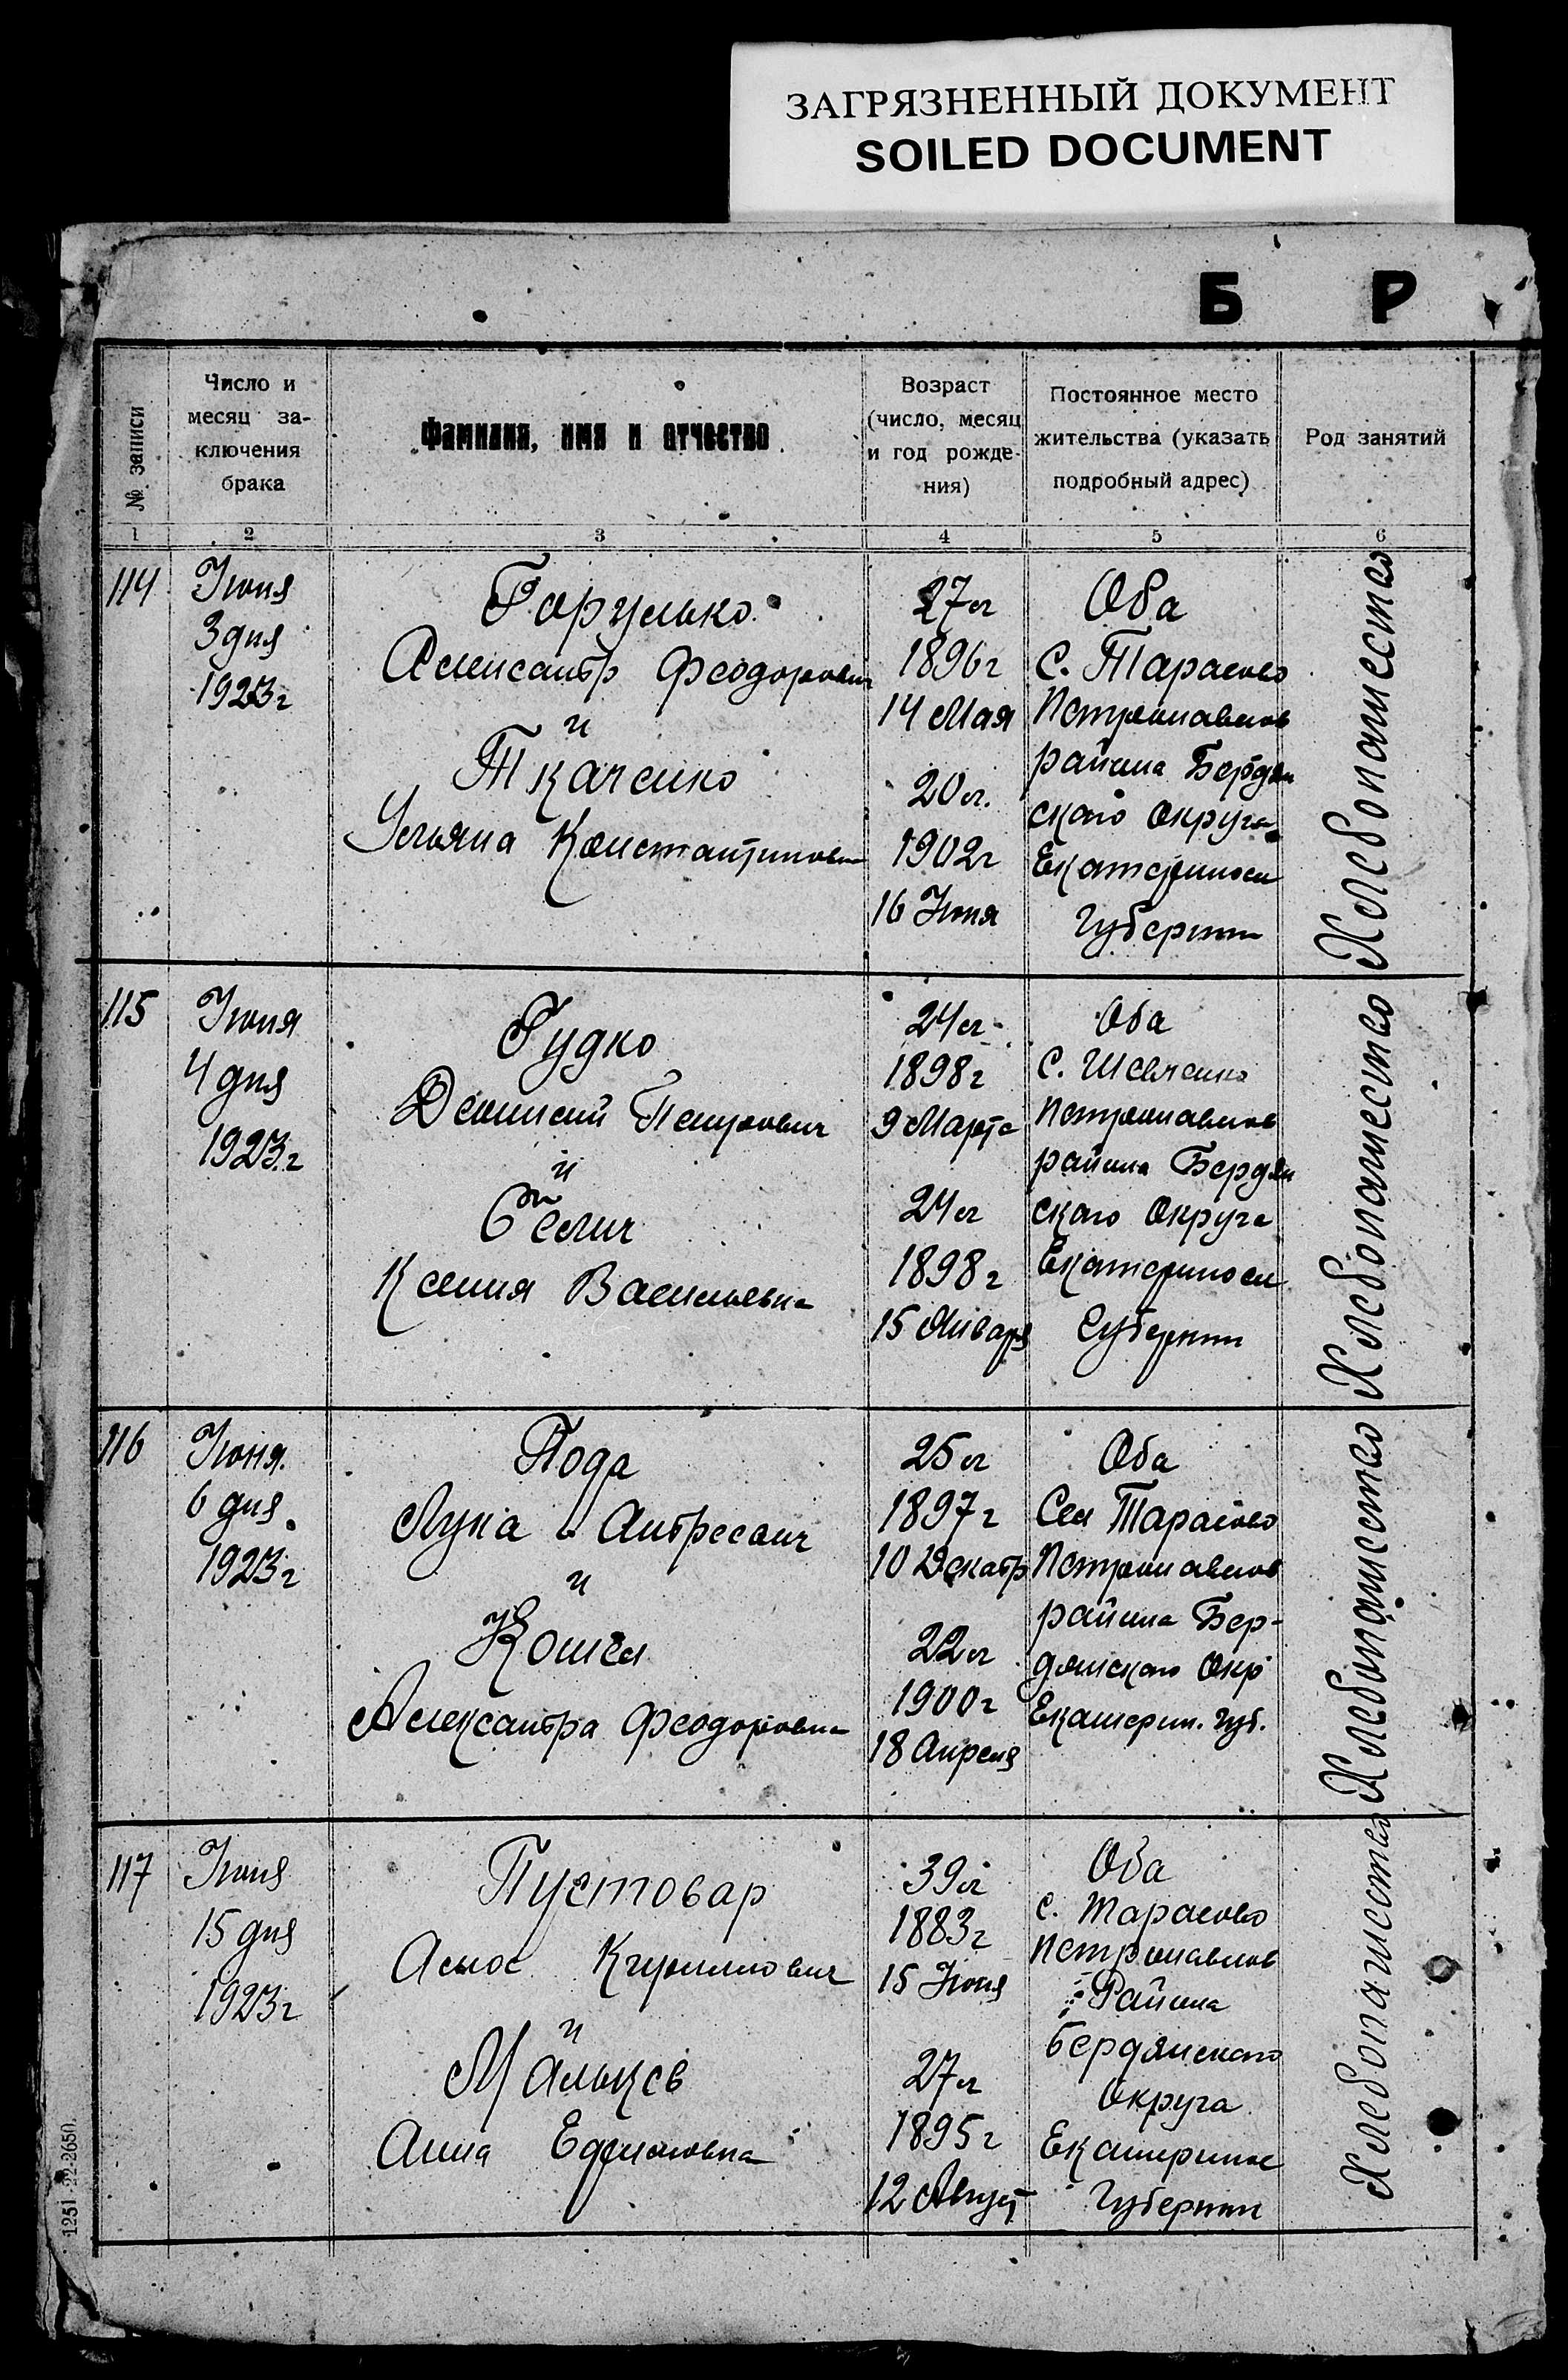 ЗАГРЯЗНЕННЫЙ ДОКУМЕНТ
SOILED DOCUMENT
Б Р
№ записи
Число и
месяц за-
ключения
брака
Фамилия, имя и отчество
Возраст
(число, месяц
и год рожде-
ния)
Постоянное место
жительства (указать
подробный адрес)
Род занятий
1 2 3 4 5 6
114
Июня
3 дня
1923 г
Горулько
Александр Феодорович
и
Ткаченко
Ульяна Константиновн
27 л
1896 г
14 Мая
20 л.
1902 г
16 Июня
Оба
С. Тарасово
Петропавлов
района Бердян
ского Округа
Екатеринос
Губернии
Хлебопашество
115
Июня
4 дня
1923 г
Гудко
Дионисий Петрович
и
Ксения Васильевна
24 л
1898 г
9 Марта
24 л
1898 г
15 Января
Оба
С. Шевченко
Петропавлов
района Бердян
ского Округа
Екатеринос
Губернии
Хлебопашество
116
Июня.
6 дня
1923 г
Пода
Лука Андреевич
и
Кошел
Александра Феодоровна
25 л
1897 г
10 Декабр
22 л
1900 г
18 Апреля
Оба
Сел Тарасово
Петропавлов
района Бер-
дянского Окр
Екатерин. губ.
Хлебопашество
117
Июня
15 дня
1923 г
Пустовар
Амос Кириллович
и
Мальцев
Анна Ефимовна
39 л
1883 г
15 Июня
27 л
1895 г
12 Август
Оба
с. Тарасово
Петропавлов
Района
Бердянского
Округа
Екатеринос
Губернии
Хлебопашество
1251 22-2650.